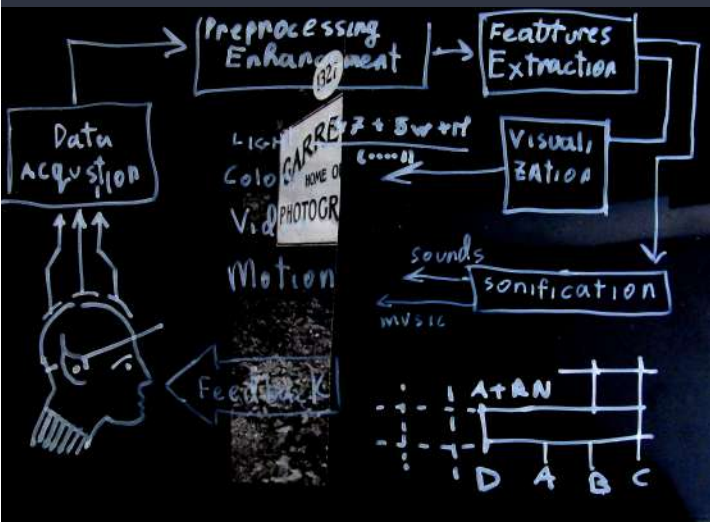 Preprocessing
Enhancement
Feattures
Extraction
Data
Acqustion
132
GARRE
HOME O
PHOTOGR
Ligh
Colo
Vid
Motion
Visuali
zation
sounds
music
sonification
Feedback
A+RN
D A B C